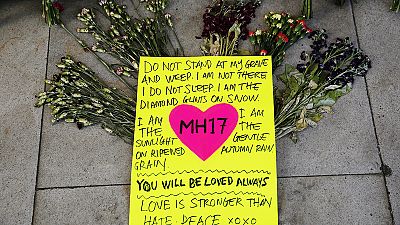 DO NOT STAND AT MY GRAVE
AND WEEP. I AM NOT THERE
I DO NOT SLEEP. I AM THE
DIAMOND GLINTS ON SNOW.
I AM
THE
SUNLIGHT
ON RIPENED
GRAIN
MH17
I AM
THE
GENTLE
AUTUMN RAIN
YOU WILL BE LOVED ALWAYS
LOVE IS STRONGER THAN
HATE. PEACE XOXO